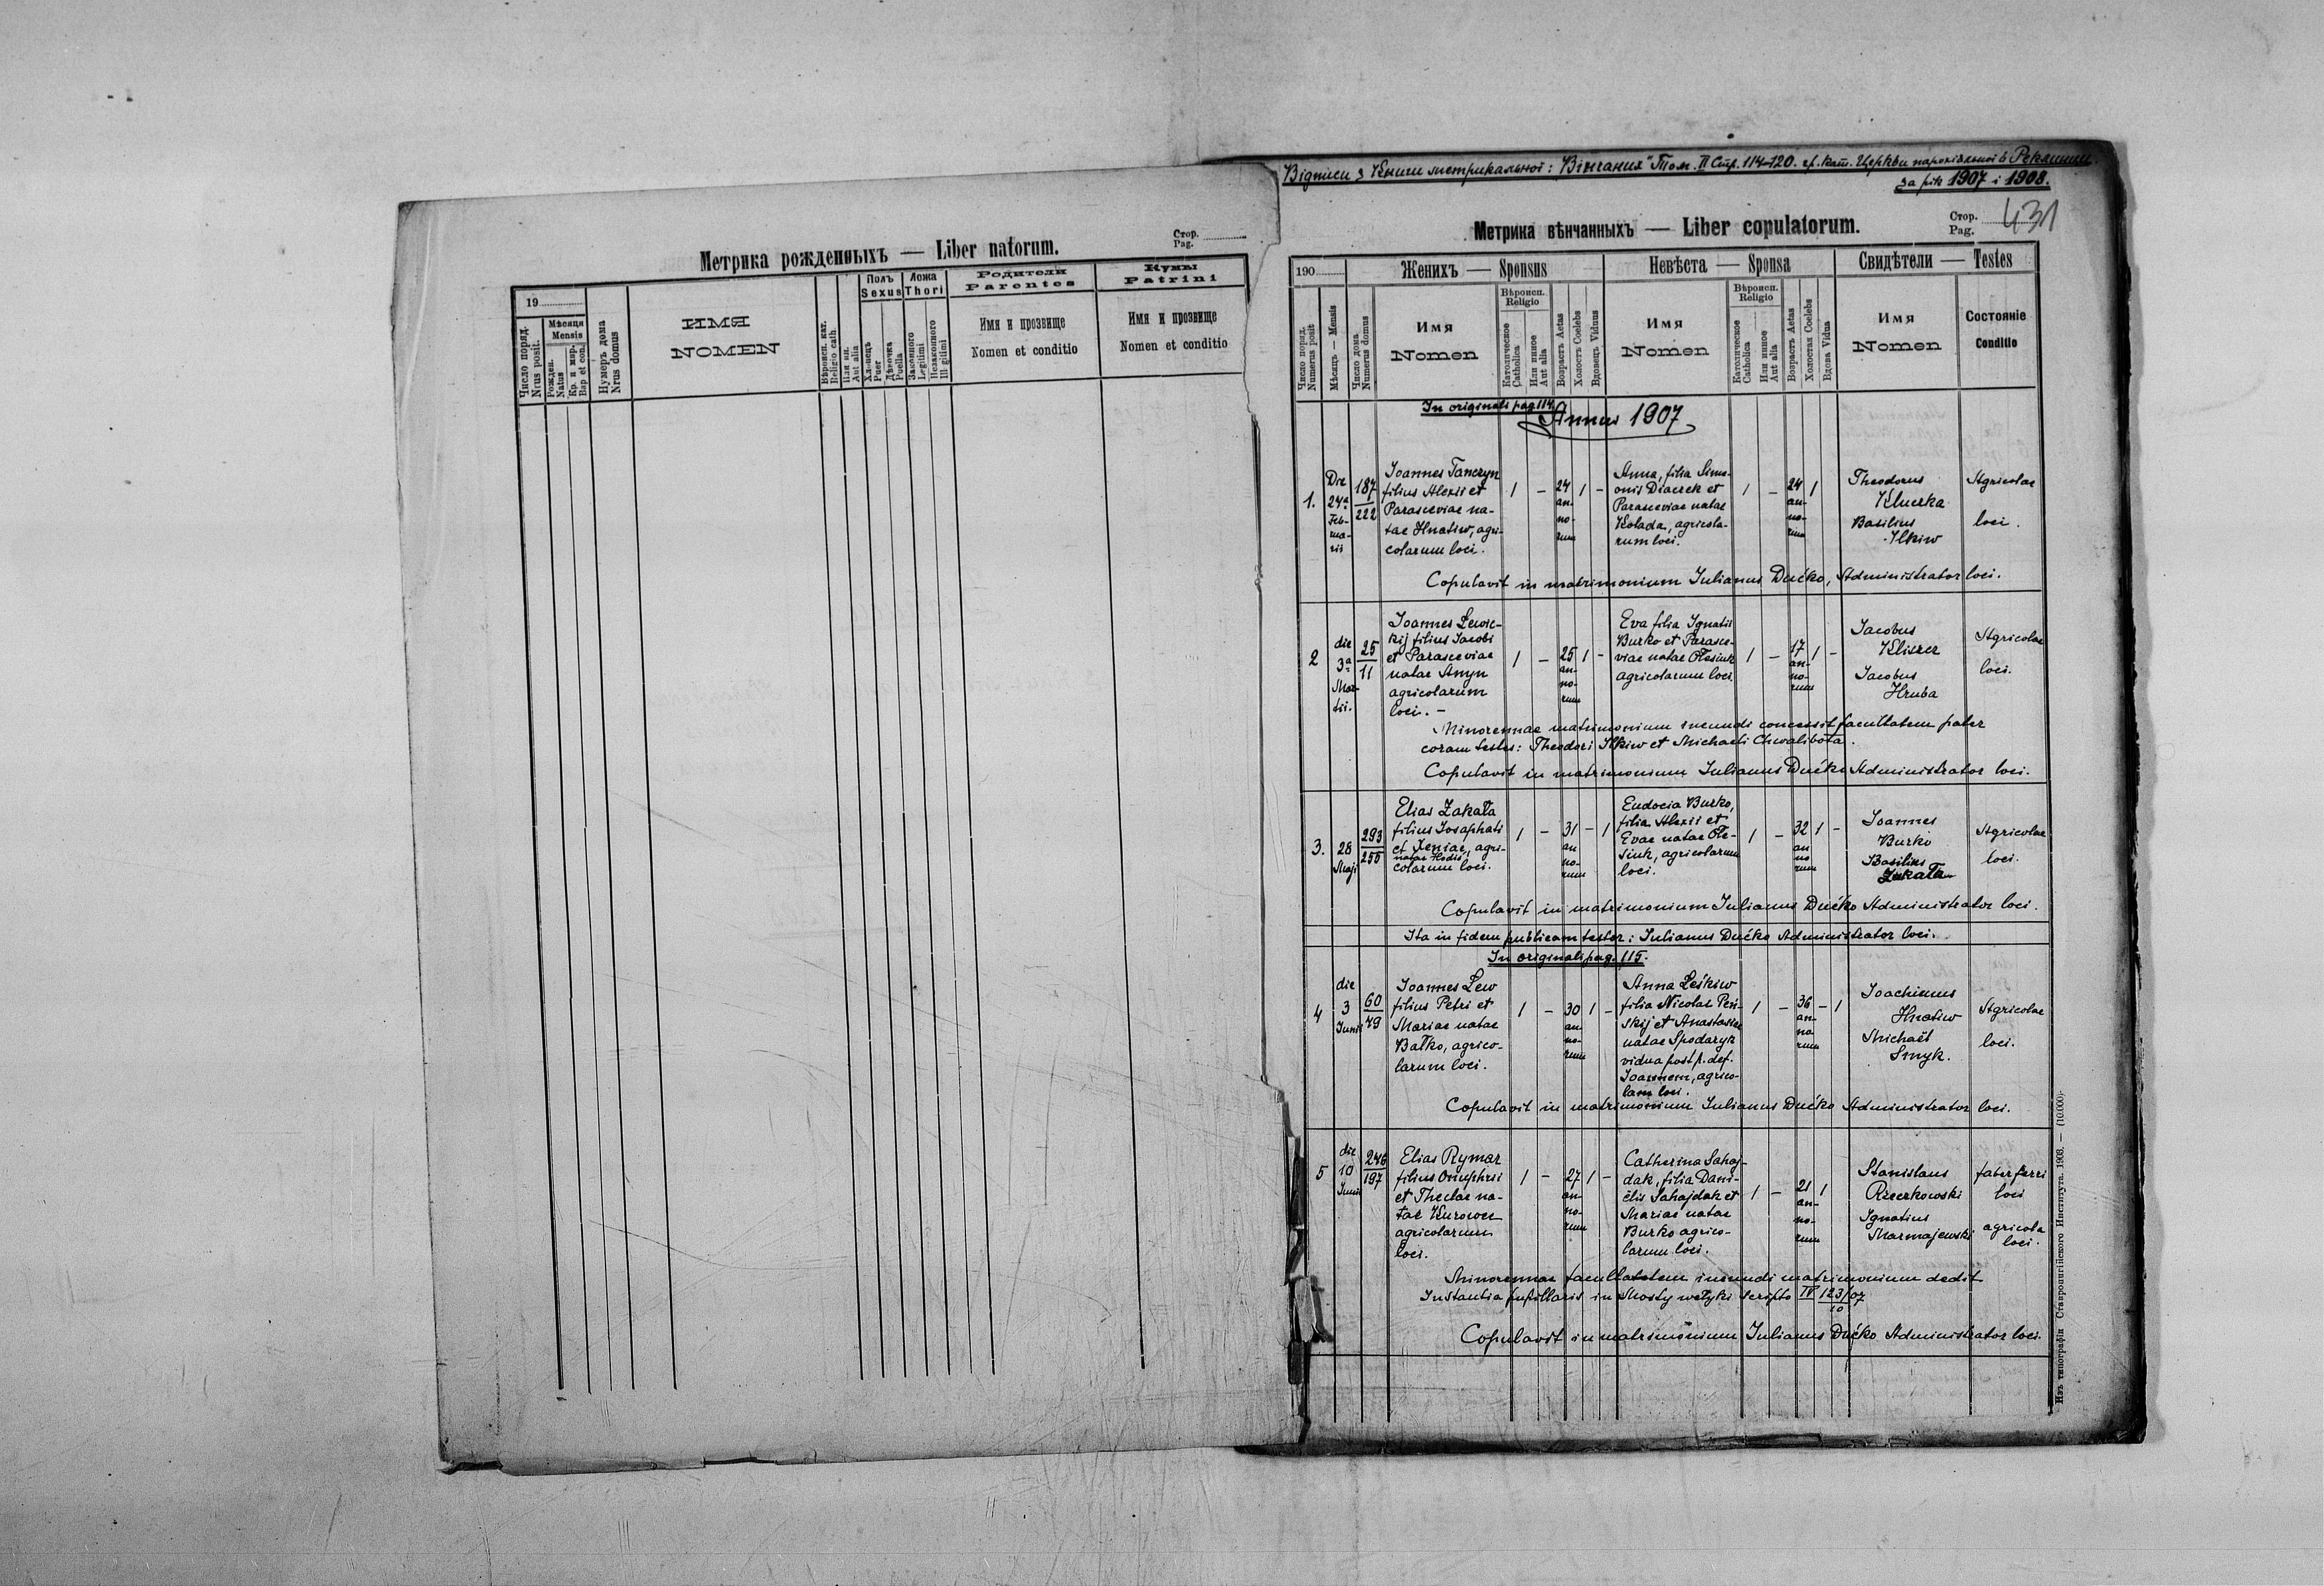 Метрика рожденныхъ — Liber natorum.
Стор.
Pag.
19
Число поряд.
Nrus posit.
Мѣсяця
Mensis
Рожден.
Natus
Кр. и мир.
Bap et con.
Нумеръ дома
Nrus domus
ИМЯ
NOMEN
Вѣроисп. кат.
Religio cath.
Или ин.
Aut alia
Полъ
Sexus
Хлопець
Puer
Дѣвочка
Puella
Ложа
Thori
Законного
Legitimi
Незаконного
Illegitimi
Родители
Parentes
Имя и прозвище
Nomen et conditio
Кумы
Patrini
Имя и прозвище
Nomen et conditio
Відписи з Книги метрикальної: "Вінчаних" Том. II Стр. 114-120. гр. кат. Церкви парохіяльної в Реклинци.
за рік 1907 і 1908.
Метрика вѣнчанныхъ — Liber copulatorum.
Стор.
Pag. 431
190
Женихъ — Sponsus
Невѣста — Sponsa
Свидѣтели — Testes
Число поряд.
Numerus posit
Мѣсяць — Mensis
Число дома
Numerus domus
Имя
Nomen
Вѣроисп.
Religio
Католическое
Catholica
Или иное
Aut alia
Возрастъ Aetas
Холостъ Coelebs
Вдовець Viduus
Имя
Nomen
Вѣроисп.
Religio
Католическое
Catholica
Или иное
Aut alia
Возрастъ Aetas
Холостая Coelebs
Вдова Vidua
Имя
Nomen
Состояніе
Conditio
In originali pag 114.
Annus 1907
1.
Die
24a
Feb-
rua-
rii
187
222
Joannes Tanczyn
filius Alexii et
Parasceviae na-
tae Hnatiw, agri-
colarum loci.
1 — 24 1 —
an-
no-
rum
Anna, filia Sime-
onis Diaczek et
Parasceviae natae
Kolada, agricola-
rum loci.
1 — 24 1
an-
no-
rum
Theodorus
Kluczka
Basilius
Ilkiw
Agricolae
loci.
Copulavit in matrimonium Julianus Dućko, Administrator loci.
2
die
3a
Mar-
tii.
25
11
Joannes Lewic-
kij filius Jacobi
et Parasceviae
natae Anyn
agricolarum
loci. —
1 — 25 1 —
an-
no-
rum
Eva filia Ignatii
Burko et Parasce-
viae natae Ołesiuk
agricolarum loci
1 — 17 1 —
an-
no-
rum
Jacobus
Jacobus
Hruba
Agricolae
loci.
Minorennae matrimonium ineundi concessit facultatem pater
coram testes: Theodori Ilkiw et Michaeli Chwalibota.
Copulavit in matrimonium Julianus Dućko Administrator loci.
3.
28
Maji
293
256
Elias Zakała
filius Josaphati
et Xeniae, agri-
natae Hodis
colarum loci.
1 — 31 — 1
an
no-
rum
Eudocia Burko,
filia Alexii et
Evae natae Ołe-
siuk, agricolarum
loci.
1 — 32 1 —
an
no
rum
Joannes
Burko
Basilius
Zakała
Agricolae
loci.
Copulavit in matrimonium Julianus Dućko Administrator loci.
Ita in fidem publicam testor: Julianus Dućko Administrator loci.
In originali pag. 115.
4
die
3
Junii
60
79
Joannes Lew
filius Petri et
Mariae natae
Bałko, agrico-
larum loci.
1 — 30 1 —
an-
no-
rum
Anna Leśkiw
filia Nicolai Peń-
skij et Anastasiae
natae Spodaryk
vidua post p. def.
Joannem, agrico-
lam loci.
1 — 36 — 1
an-
no
rum
Joachimus
Hnatiw
Michaël
Smyk.
Agricolae
loci.
Copulavit in matrimonium Julianus Dućko Administrator loci.
5
die
10
Junii
246
197
Elias Rymar
filius Onuphrii
et Theclae na-
tae Kurowec
agricolarum
loci.
1 — 27 1 —
an-
no-
rum
Catherina Sahaj-
dak, filia Dani-
elis Sahajdak et
Mariae natae
Burko agrico-
larum loci.
1 — 21 1
an-
no-
rum
Stanislaus
Rzeczkowski
Ignatius
Marmajewski
faber ferri
loci
agricola
loci.
Minorennae facultatem ineundi matrimonium dedit
Instantia pupillaris in Mosty wełyki scripto IV 123/07
10
Copulavit in matrimonium Julianus Dućko Administrator loci.
Изъ типографіи Ставропигійского Института. 1908. — (10.000).